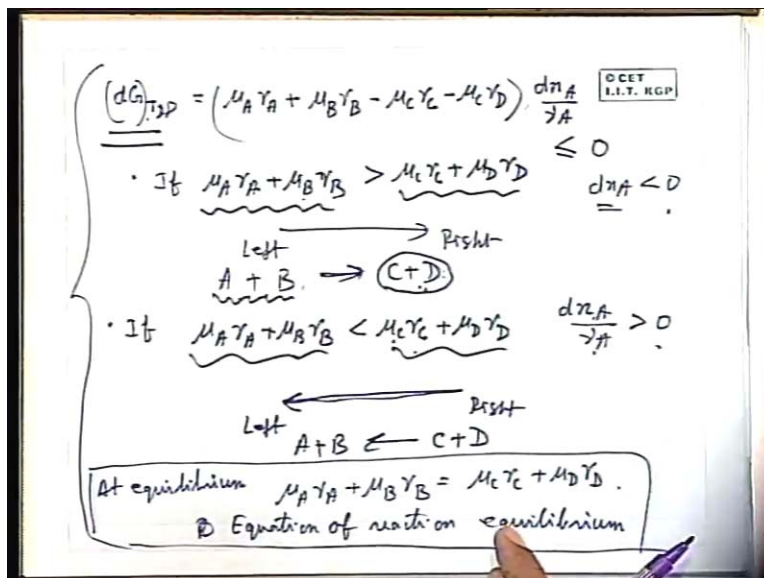 (dG)_{T,P} = (μ_A γ_A + μ_B γ_B - μ_C γ_C - μ_C γ_D) dn_A/γ_A
© CET
I.I.T. KGP
≤ 0
· If μ_A γ_A + μ_B γ_B > μ_C γ_C + μ_D γ_D dn_A < 0
Left → Right
A + B → C+D
· If μ_A γ_A + μ_B γ_B < μ_C γ_C + μ_D γ_D dn_A/γ_A > 0
Left ← Right
A+B ← C+D
At equilibrium μ_A γ_A + μ_B γ_B = μ_C γ_C + μ_D γ_D.
Equation of reaction equilibrium